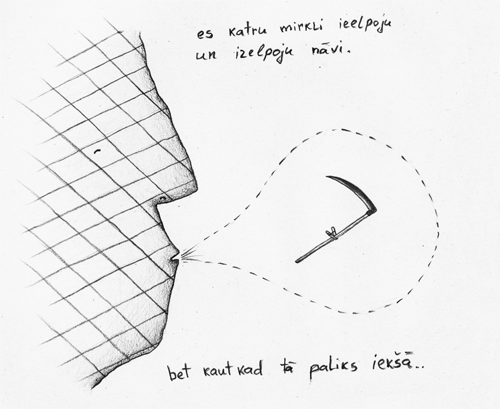 es katru mirkli ieelpoju
un izelpoju nāvi.
bet kautkad tā paliks iekšā..